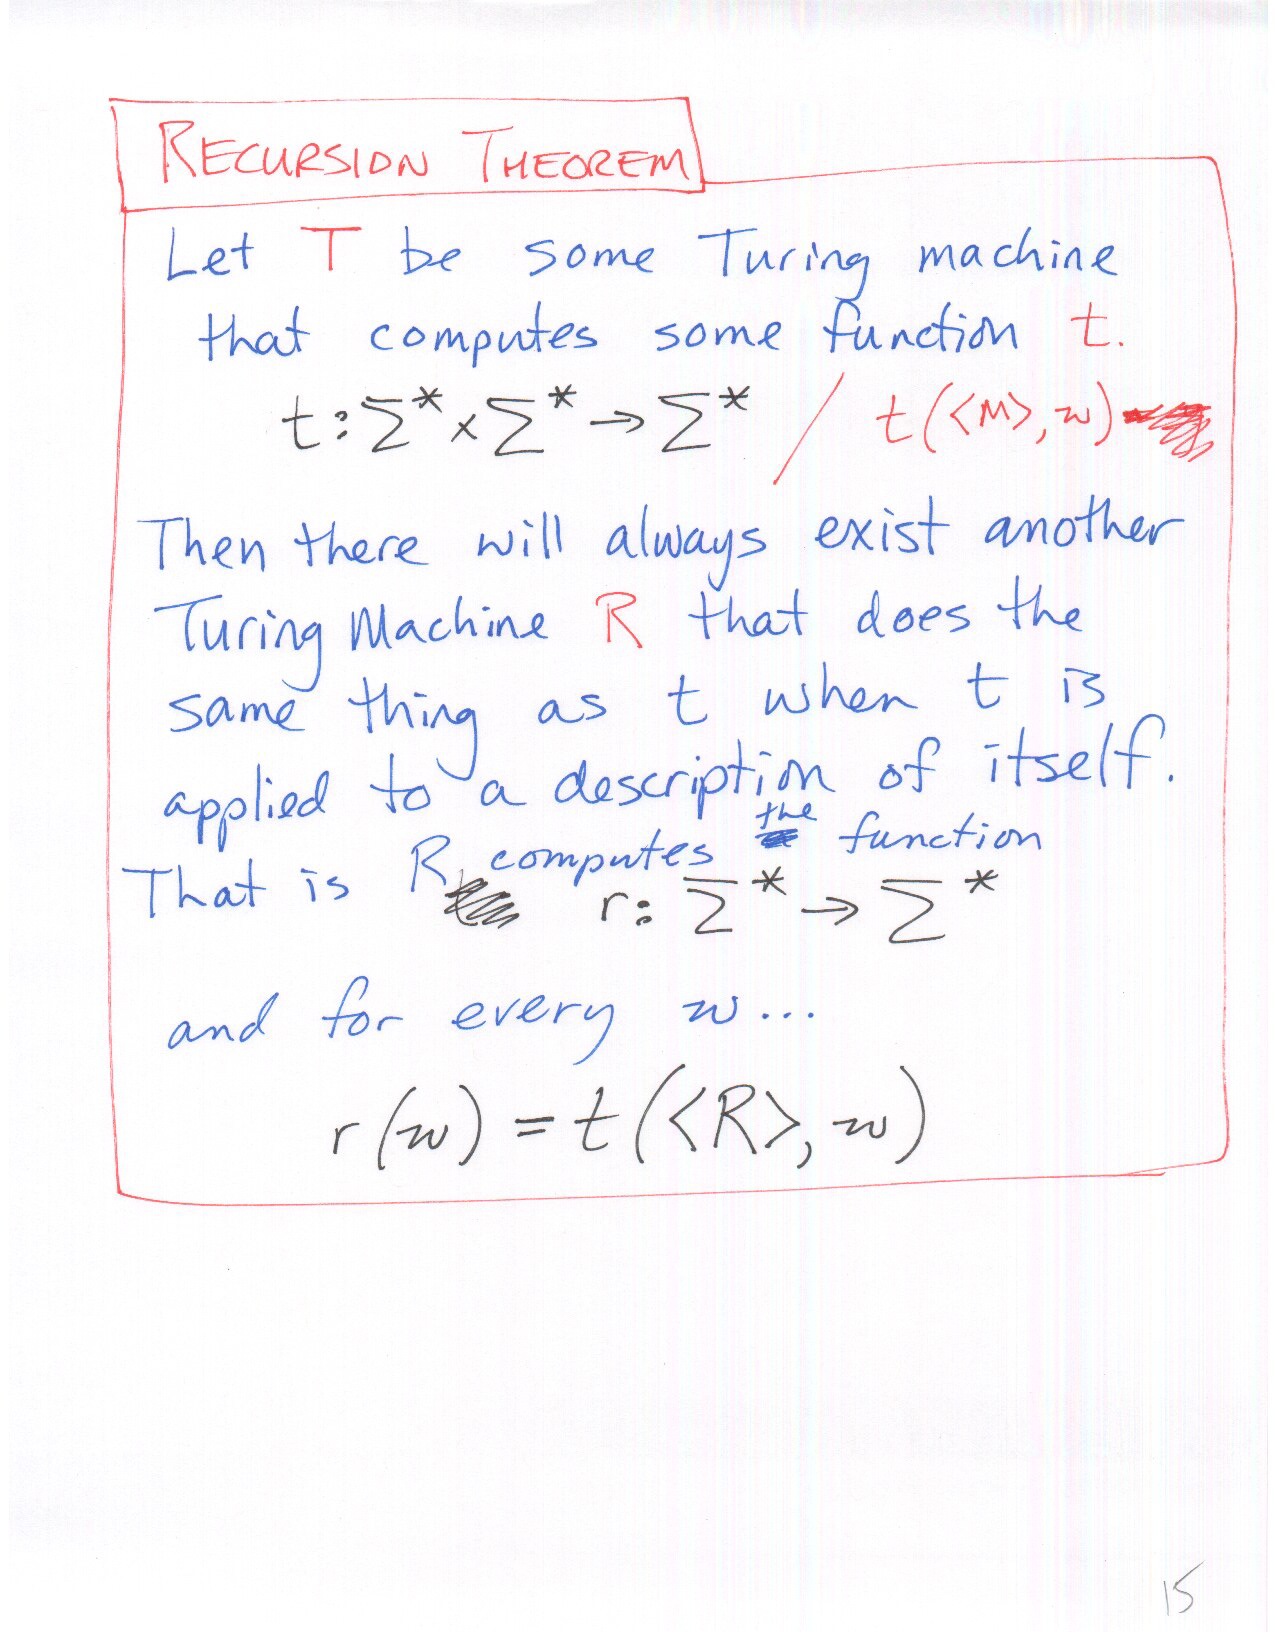 RECURSION THEOREM
Let T be some Turing machine
that computes some function t.
t: Σ* × Σ* → Σ* / t(<M>, w)
Then there will always exist another
Turing Machine R that does the
same thing as t when t is
applied to a description of itself.
That is R computes the function
r: Σ* → Σ*
and for every w...
r(w) = t(<R>, w)
15